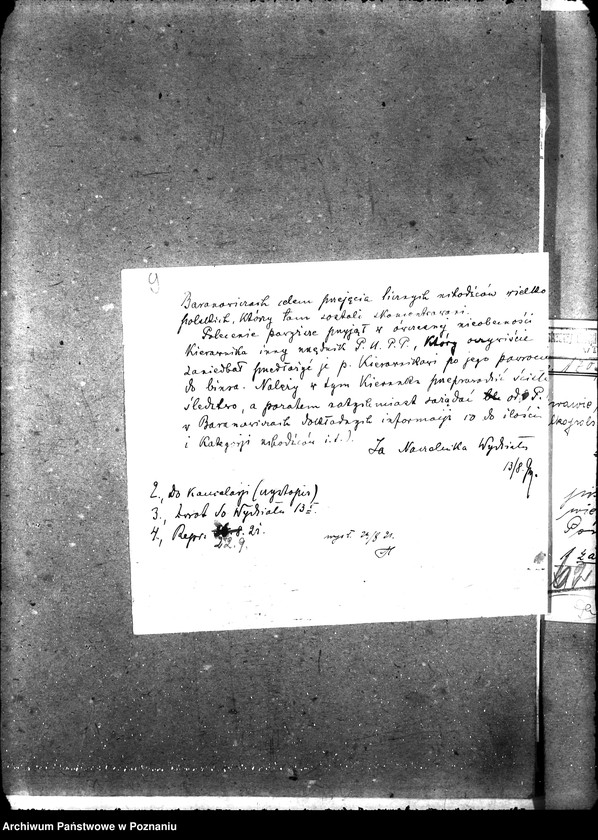 9
Baranowiczach celem przejęcia licznych uchodźców wielko
polskich, którzy tam zostali skoncentrowani.
Polecenie powyższe przyjął w ówczesnej nieobecności
Kierownika inny urzędnik P.U.P.P., który oczywiście
zaniedbał przedłożyć je p. Kierownikowi po jego powrocie
do biura. Należy w tym kierunku przeprowadzić ściśłe
śledztwo, a poza tem natychmiast zażądać od P.P.
w Baranowiczach dokładnych informacji co do ilości
i kategorji uchodźców i.t.).
Za Naczelnika Wydziału
13/8.
2., Do Kancelarji (czystopis)
3., zwrot do Wydziału 13
4., Repr. 21.
22.9.
wysł. 22/8 21.
Archiwum Państwowe w Poznaniu